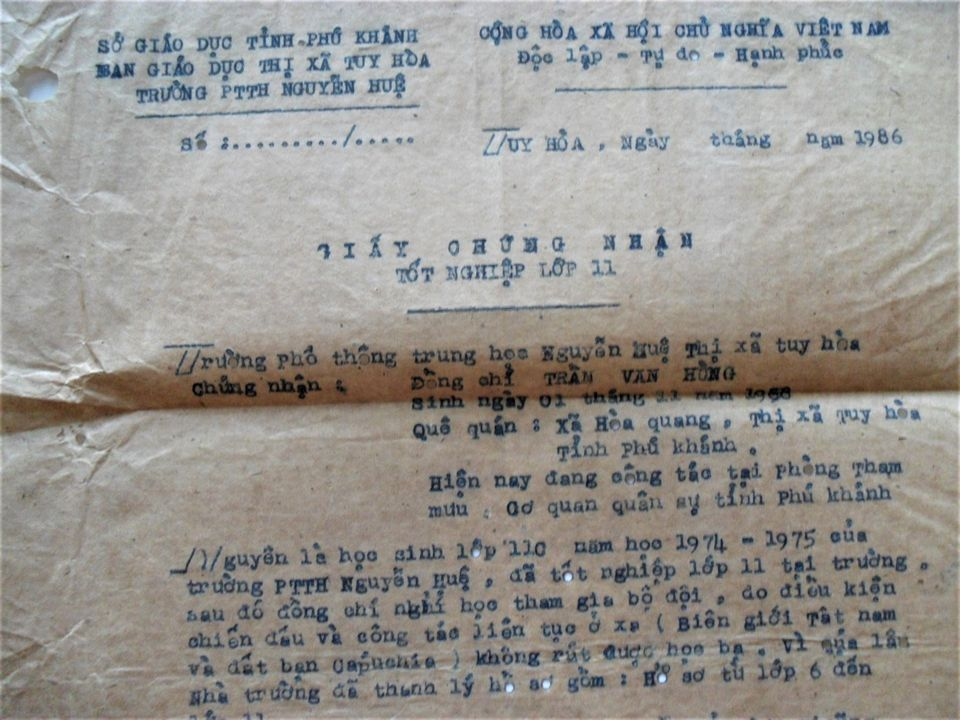 SỞ GIÁO DỤC TỈNH PHÚ KHÁNH
BAN GIÁO DỤC THỊ XÃ TUY HÒA
TRƯỜNG PTTH NGUYỄN HUỆ
Số :........./.....
CỘNG HÒA XÃ HỘI CHỦ NGHĨA VIỆT NAM
Độc lập - Tự do - Hạnh phúc
TUY HÒA , Ngày tháng năm 1986
GIẤY CHỨNG NHẬN
TỐT NGHIỆP LỚP 11
Trường phổ thông trung học Nguyễn Huệ Thị xã tuy hòa
Chứng nhận : Đồng chí TRẦN VAN HÙNG
Sinh ngày 01 tháng 11 năm 1958
Quê quán : Xã Hòa quang , Thị xã Tuy hòa
Tỉnh Phú khánh .
Hiện nay đang công tác tại phòng Tham
mưu . Cơ quan quân sự tỉnh Phú khánh
Nguyên là học sinh lớp 11C năm học 1974 - 1975 của
trường PTTH Nguyễn Huệ , đã tốt nghiệp lớp 11 tại trường ,
sau đó đồng chí nghỉ học tham gia bộ đội , do điều kiện
chiến đấu và công tác liên tục ở xa ( Biên giới Tât nam
và đất bạn Capuchia ) không rút được học bạ . Vì qúa lâu
Nhà trường đã thanh lý hồ sơ gồm : Hồ sơ từ lớp 6 đến
lớp 11